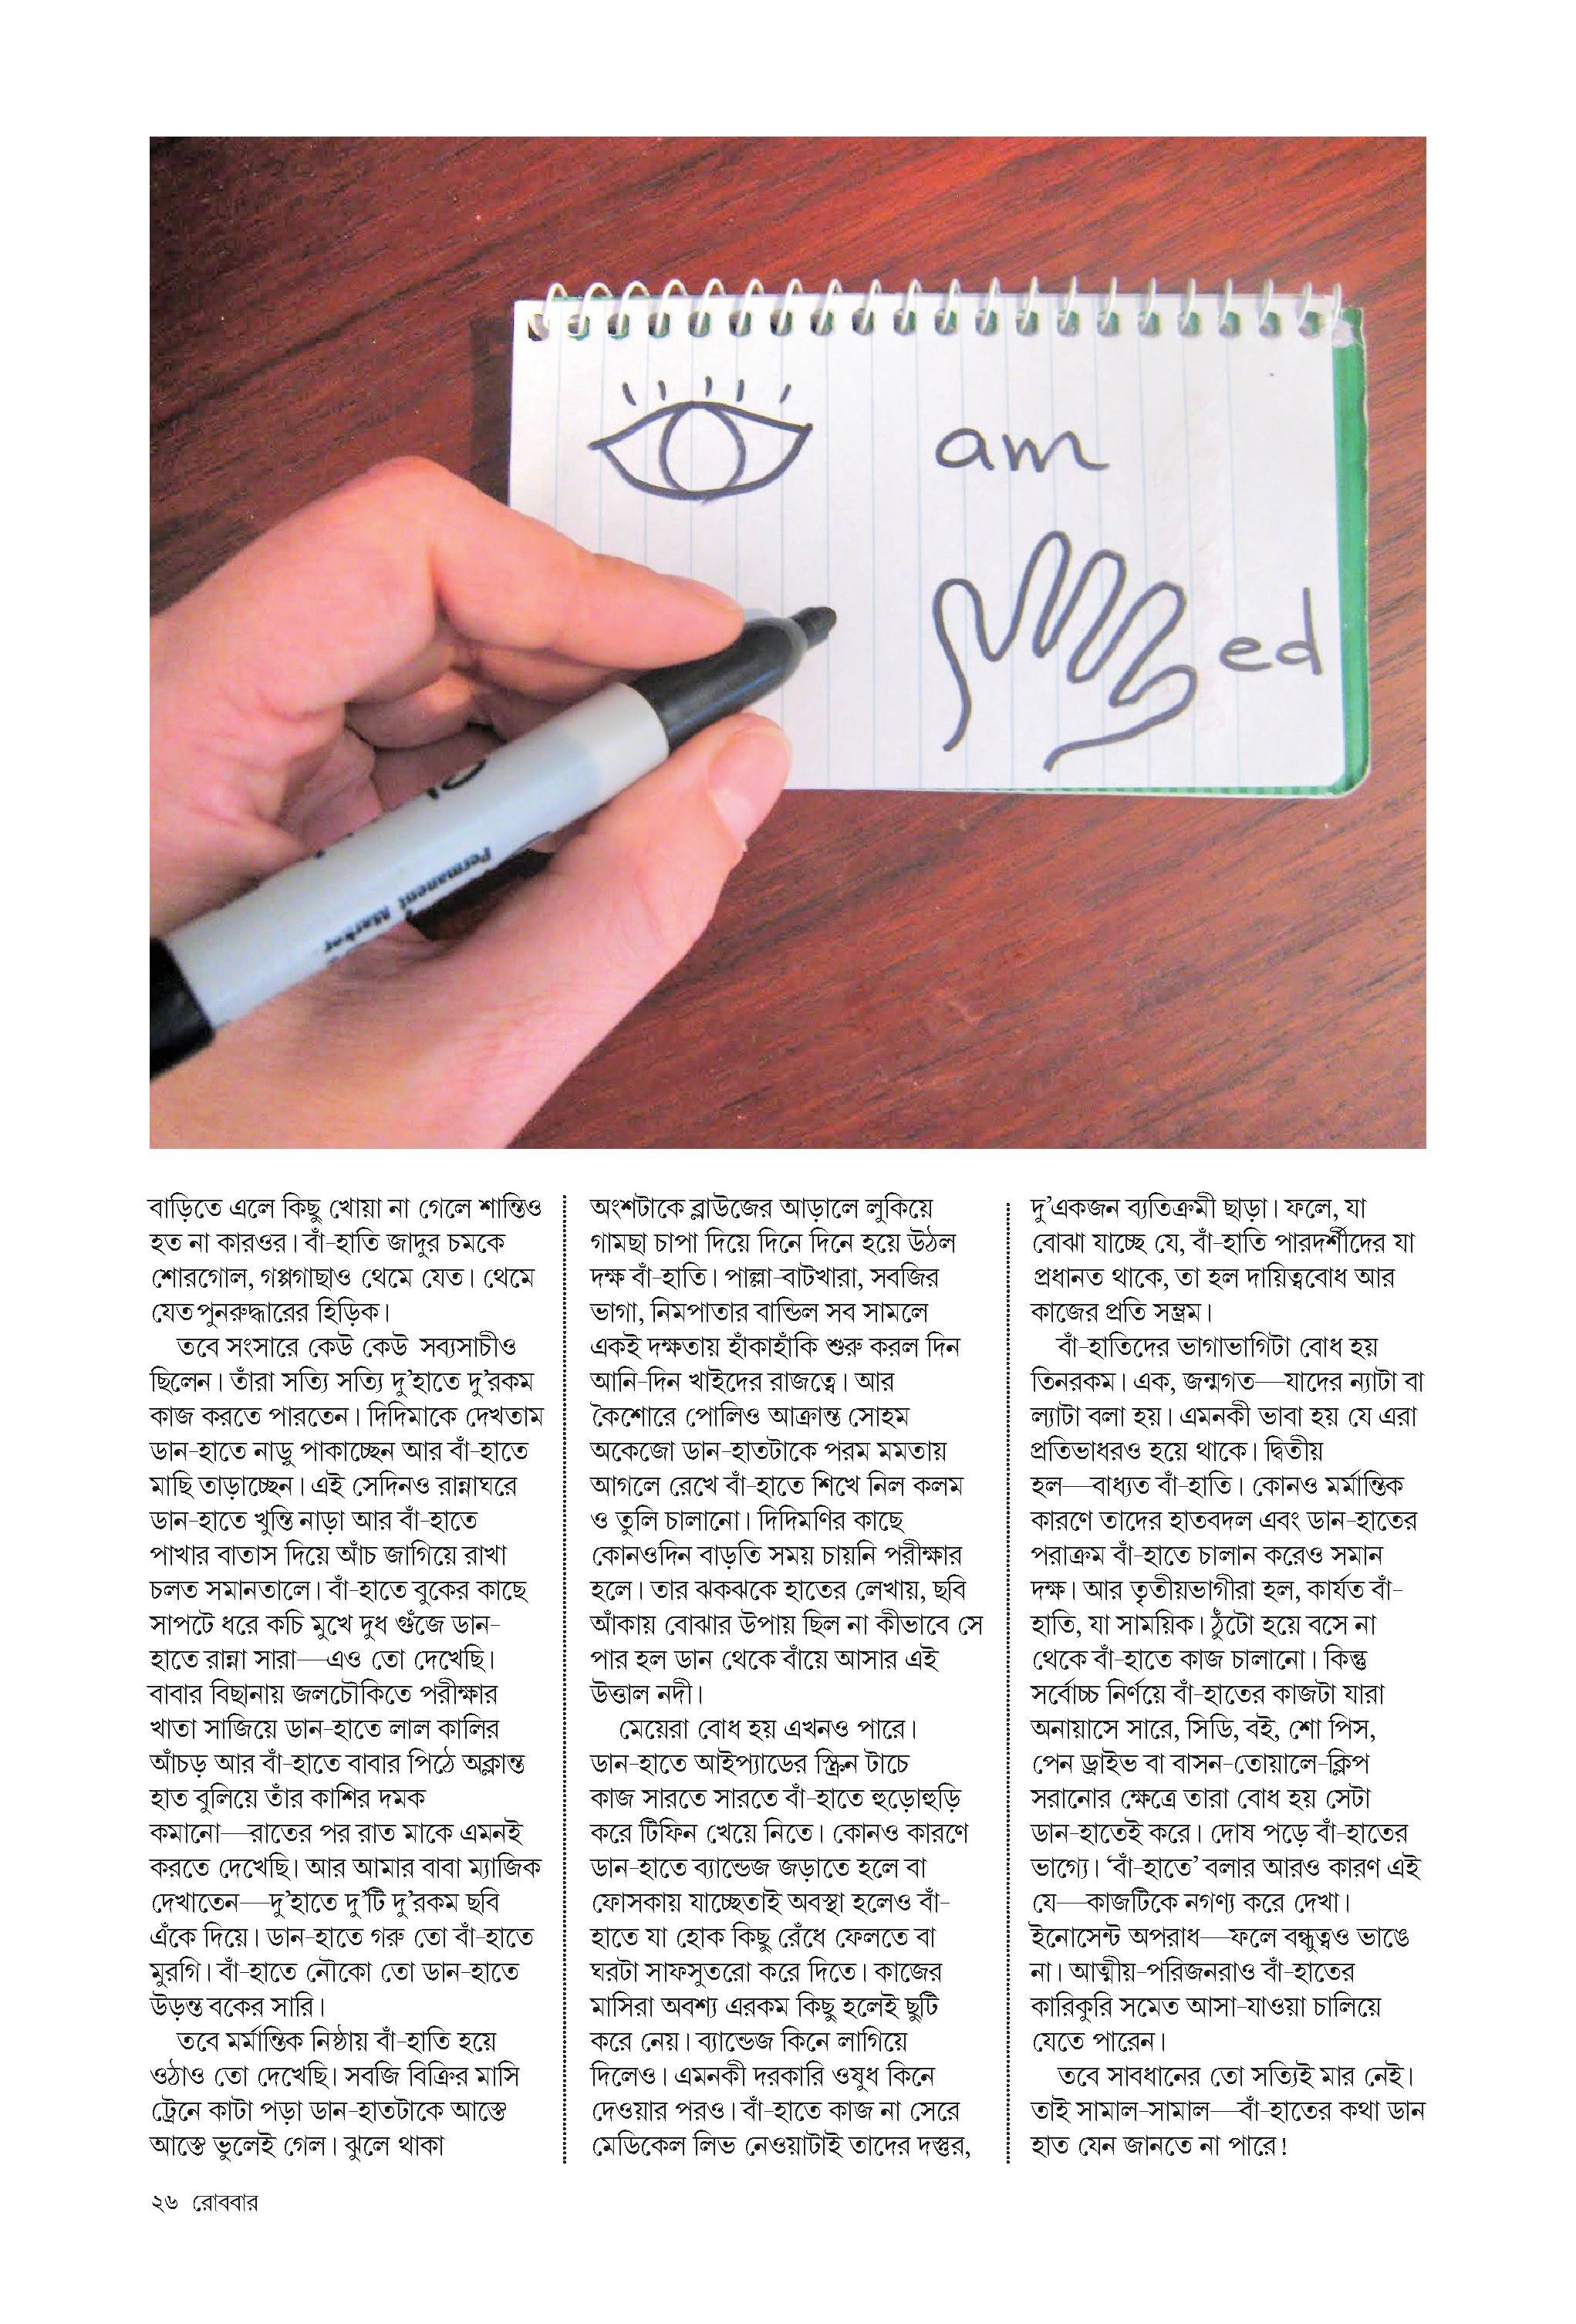 am
ed
Permanent Marker
বাড়িতে এলে কিছু খোয়া না গেলে শান্তিও
হত না কারওর। বাঁ-হাতি জাদুর চমকে
শোরগোল, গপ্পগাছাও থেমে যেত। থেমে
যেত পুনরুদ্ধারের হিড়িক।
তবে সংসারে কেউ কেউ সব্যসাচীও
ছিলেন। তাঁরা সত্যি সত্যি দু’হাতে দু’রকম
কাজ করতে পারতেন। দিদিমাকে দেখতাম
ডান-হাতে নাড়ু পাকাচ্ছেন আর বাঁ-হাতে
মাছি তাড়াচ্ছেন। এই সেদিনও রান্নাঘরে
ডান-হাতে খুন্তি নাড়া আর বাঁ-হাতে
পাখার বাতাস দিয়ে আঁচ জাগিয়ে রাখা
চলত সমানতালে। বাঁ-হাতে বুকের কাছে
সাপটে ধরে কচি মুখে দুধ গুঁজে ডান-
হাতে রান্না সারা—এও তো দেখেছি।
বাবার বিছানায় জলচৌকিতে পরীক্ষার
খাতা সাজিয়ে ডান-হাতে লাল কালির
আঁচড় আর বাঁ-হাতে বাবার পিঠে অক্লান্ত
হাত বুলিয়ে তাঁর কাশির দমক
কমানো—রাতের পর রাত মাকে এমনই
করতে দেখেছি। আর আমার বাবা ম্যাজিক
দেখাতেন—দু’হাতে দু’টি দু’রকম ছবি
এঁকে দিয়ে। ডান-হাতে গরু তো বাঁ-হাতে
মুরগি। বাঁ-হাতে নৌকো তো ডান-হাতে
উড়ন্ত বকের সারি।
তবে মর্মান্তিক নিষ্ঠায় বাঁ-হাতি হয়ে
ওঠাও তো দেখেছি। সবজি বিক্রির মাসি
ট্রেনে কাটা পড়া ডান-হাতটাকে আস্তে
আস্তে ভুলেই গেল। ঝুলে থাকা
অংশটাকে ব্লাউজের আড়ালে লুকিয়ে
গামছা চাপা দিয়ে দিনে দিনে হয়ে উঠল
দক্ষ বাঁ-হাতি। পাল্লা-বাটখারা, সবজির
ভাগা, নিমপাতার বান্ডিল সব সামলে
একই দক্ষতায় হাঁকাহাঁকি শুরু করল দিন
আনি-দিন খাইদের রাজত্বে। আর
কৈশোরে পোলিও আক্রান্ত সোহম
অকেজো ডান-হাতটাকে পরম মমতায়
আগলে রেখে বাঁ-হাতে শিখে নিল কলম
ও তুলি চালানো। দিদিমণির কাছে
কোনওদিন বাড়তি সময় চায়নি পরীক্ষার
হলে। তার ঝকঝকে হাতের লেখায়, ছবি
আঁকায় বোঝার উপায় ছিল না কীভাবে সে
পার হল ডান থেকে বাঁয়ে আসার এই
উত্তাল নদী।
মেয়েরা বোধ হয় এখনও পারে।
ডান-হাতে আইপ্যাডের স্ক্রিন টাচে
কাজ সারতে সারতে বাঁ-হাতে হুড়োহুড়ি
করে টিফিন খেয়ে নিতে। কোনও কারণে
ডান-হাতে ব্যান্ডেজ জড়াতে হলে বা
ফোসকায় যাচ্ছেতাই অবস্থা হলেও বাঁ-
হাতে যা হোক কিছু রেঁধে ফেলতে বা
ঘরটা সাফসুতরো করে দিতে। কাজের
মাসিরা অবশ্য এরকম কিছু হলেই ছুটি
করে নেয়। ব্যান্ডেজ কিনে লাগিয়ে
দিলেও। এমনকী দরকারি ওষুধ কিনে
দেওয়ার পরও। বাঁ-হাতে কাজ না সেরে
মেডিকেল লিভ নেওয়াটাই তাদের দস্তুর,
দু’একজন ব্যতিক্রমী ছাড়া। ফলে, যা
বোঝা যাচ্ছে যে, বাঁ-হাতি পারদর্শীদের যা
প্রধানত থাকে, তা হল দায়িত্ববোধ আর
কাজের প্রতি সম্ভ্রম।
বাঁ-হাতিদের ভাগাভাগিটা বোধ হয়
তিনরকম। এক, জন্মগত—যাদের ন্যাটা বা
ল্যাটা বলা হয়। এমনকী ভাবা হয় যে এরা
প্রতিভাধরও হয়ে থাকে। দ্বিতীয়
হল—বাধ্যত বাঁ-হাতি। কোনও মর্মান্তিক
কারণে তাদের হাতবদল এবং ডান-হাতের
পরাক্রম বাঁ-হাতে চালান করেও সমান
দক্ষ। আর তৃতীয়ভাগীরা হল, কার্যত বাঁ-
হাতি, যা সাময়িক। ঠুঁটো হয়ে বসে না
থেকে বাঁ-হাতে কাজ চালানো। কিন্তু
সর্বোচ্চ নির্ণয়ে বাঁ-হাতের কাজটা যারা
অনায়াসে সারে, সিডি, বই, শো পিস,
পেন ড্রাইভ বা বাসন-তোয়ালে-ক্লিপ
সরানোর ক্ষেত্রে তারা বোধ হয় সেটা
ডান-হাতেই করে। দোষ পড়ে বাঁ-হাতের
ভাগ্যে। ‘বাঁ-হাতে’ বলার আরও কারণ এই
যে—কাজটিকে নগণ্য করে দেখা।
ইনোসেন্ট অপরাধ—ফলে বন্ধুত্বও ভাঙে
না। আত্মীয়-পরিজনরাও বাঁ-হাতের
কারিকুরি সমেত আসা-যাওয়া চালিয়ে
যেতে পারেন।
তবে সাবধানের তো সত্যিই মার নেই।
তাই সামাল-সামাল—বাঁ-হাতের কথা ডান
হাত যেন জানতে না পারে!
২৬ রোববার